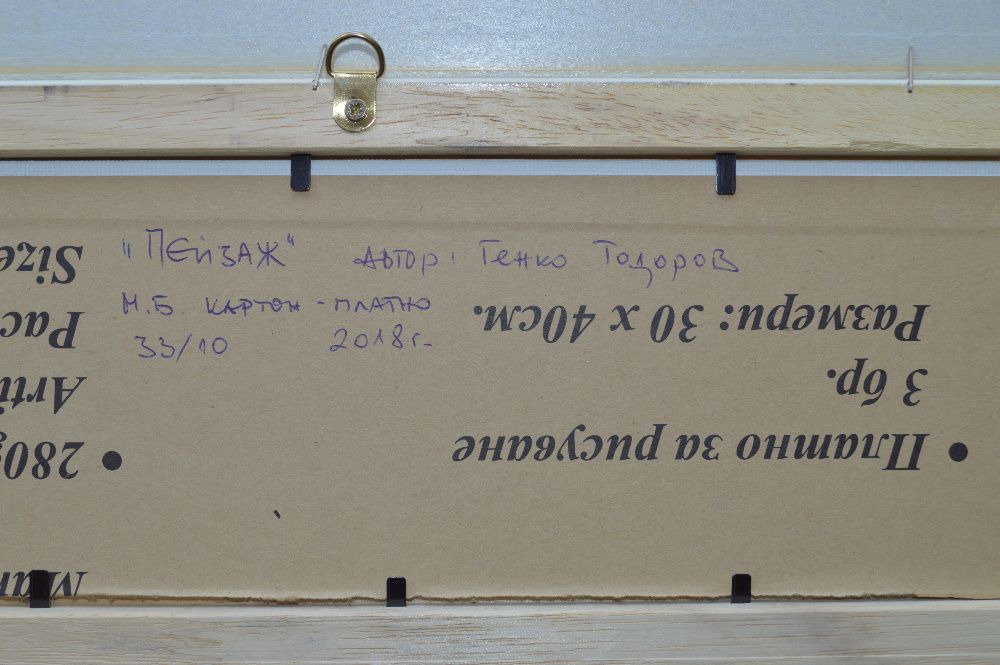 "ПЕЙЗАЖ" АВТОР: ГЕНКО ТОДОРОВ
М.Б. КАРТОН - ПЛАТНО
33/10 2018г.
• Платно за рисуване
3 бр.
Размери: 30 х 40см.
• 280g
Arti
Pac
Size